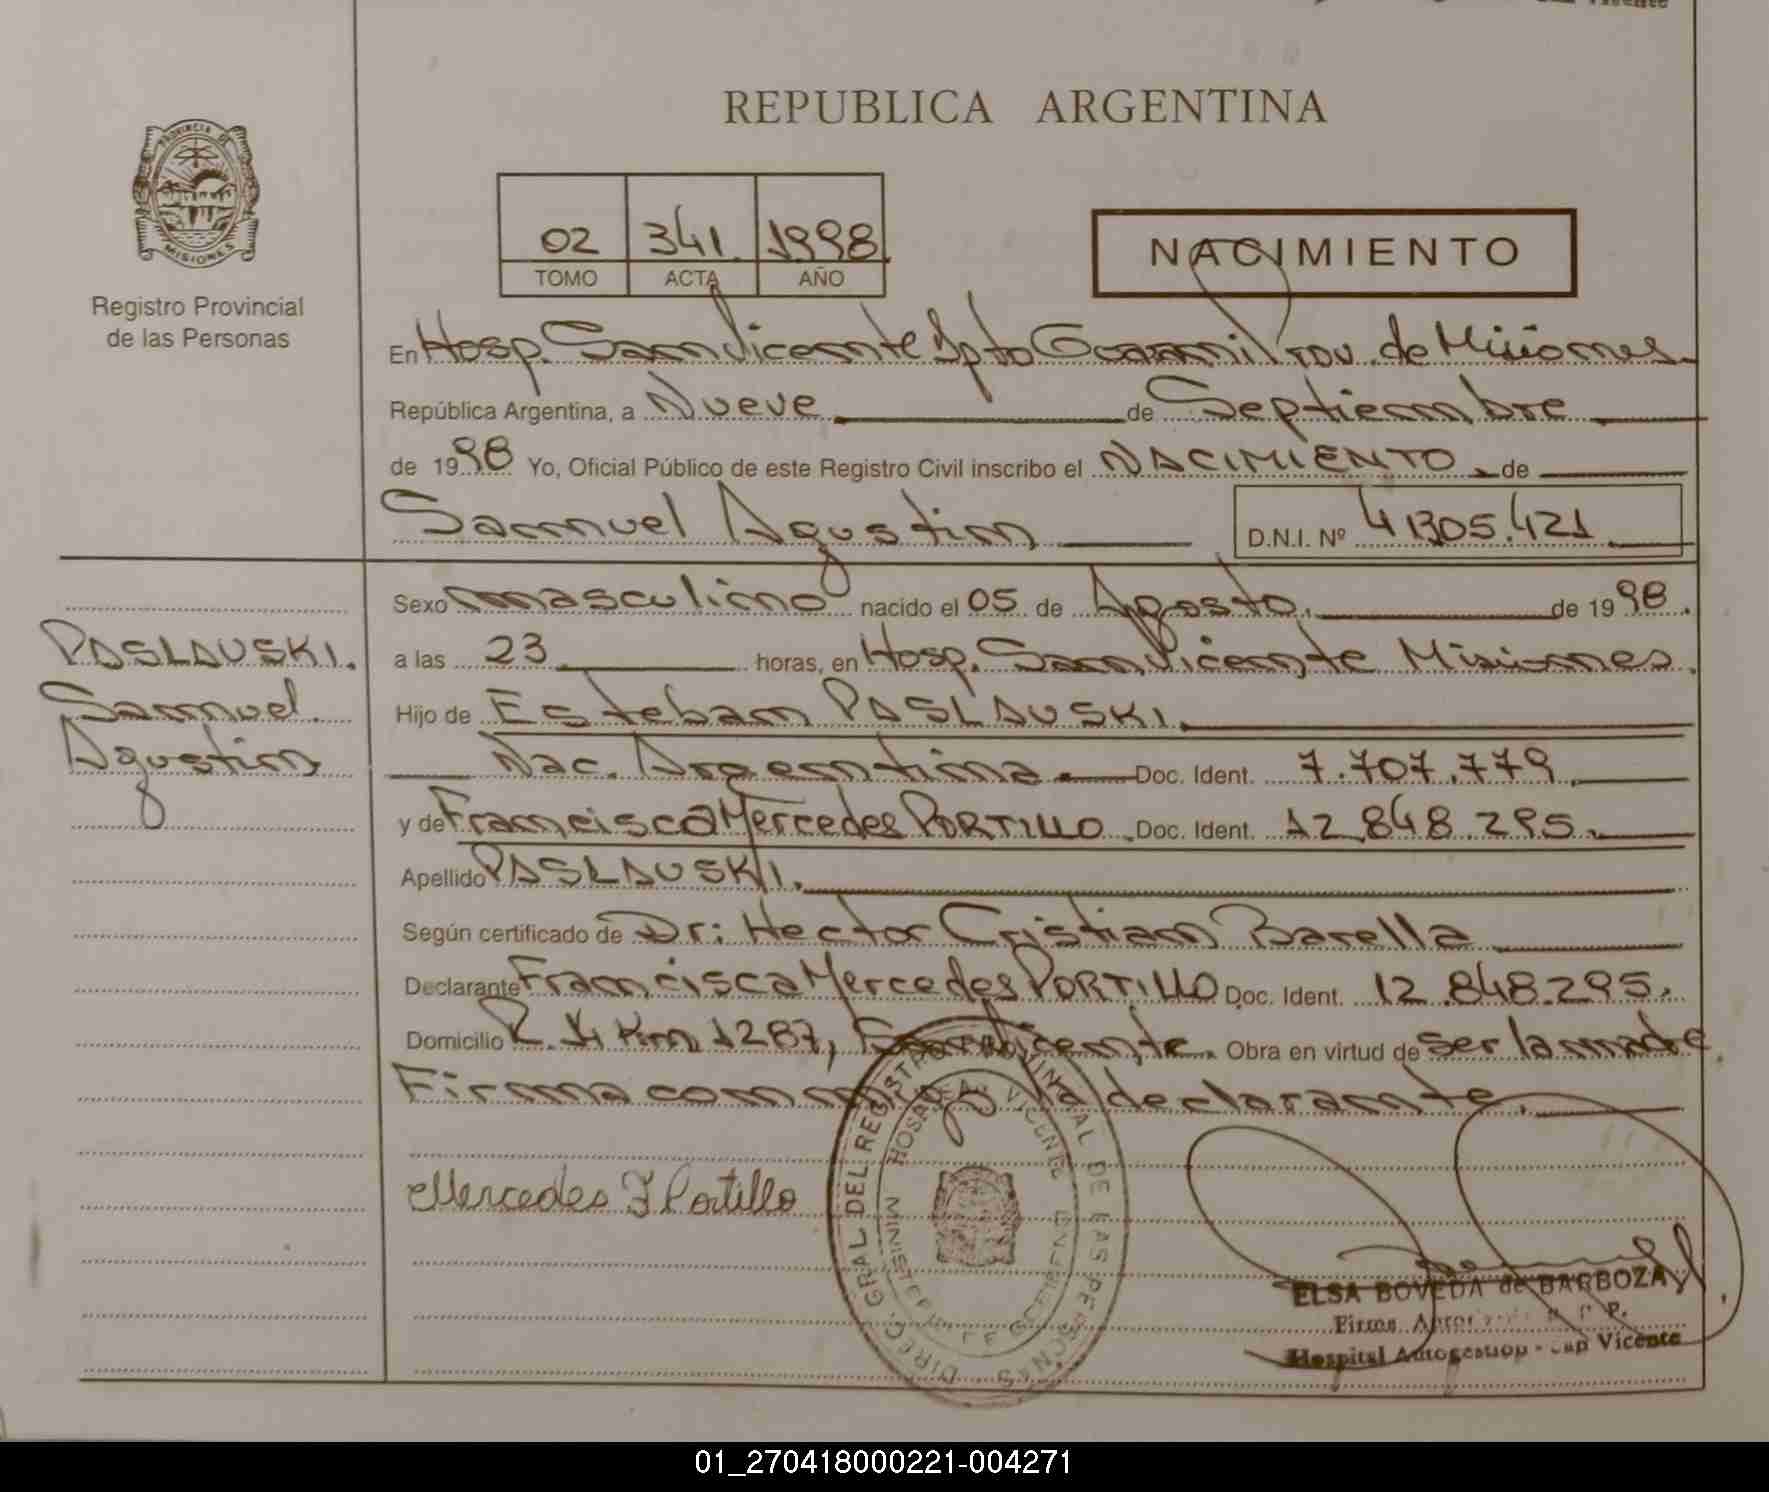 REPUBLICA ARGENTINA
PROVINCIA DE
MISIONES
Registro Provincial
de las Personas
02 341. 1998
TOMO ACTA AÑO
NACIMIENTO
En Hosp. San Vicente Dpto Guarani Prov. de Misiones.
República Argentina, a Nueve de Septiembre
de 1998 Yo, Oficial Público de este Registro Civil inscribo el NACIMIENTO de
Samuel Agustin D.N.I. Nº 41305.421
Sexo masculino nacido el 05 de Agosto. de 1998.
PASLAUSKI.
Samuel
Agustin
a las 23 horas, en Hosp. San Vicente Misiones.
Hijo de Esteban PASLAUSKI.
Nac. Argentina Doc. Ident. 7.707.779.
y de Francisca Mercedes PORTILLO Doc. Ident. 12.848.295.
Apellido PASLAUSKI.
Según certificado de Dr: Hector Cristian Barella
Declarante Francisca Mercedes PORTILLO Doc. Ident. 12.848.295.
Domicilio Km 1287, San Vicente. Obra en virtud de ser la madre.
Firma conmigo la declarante.
Mercedes F Portillo
DIREC. GRAL DEL REGISTRO PROVINCIAL DE LAS PERSONAS
HOSPITAL S. VICENTE
MINISTERIO DE GOBIERNO
ELSA BOVEDA de BARBOZA
Firma
Hospital Autogestion - San Vicente
01_270418000221-004271